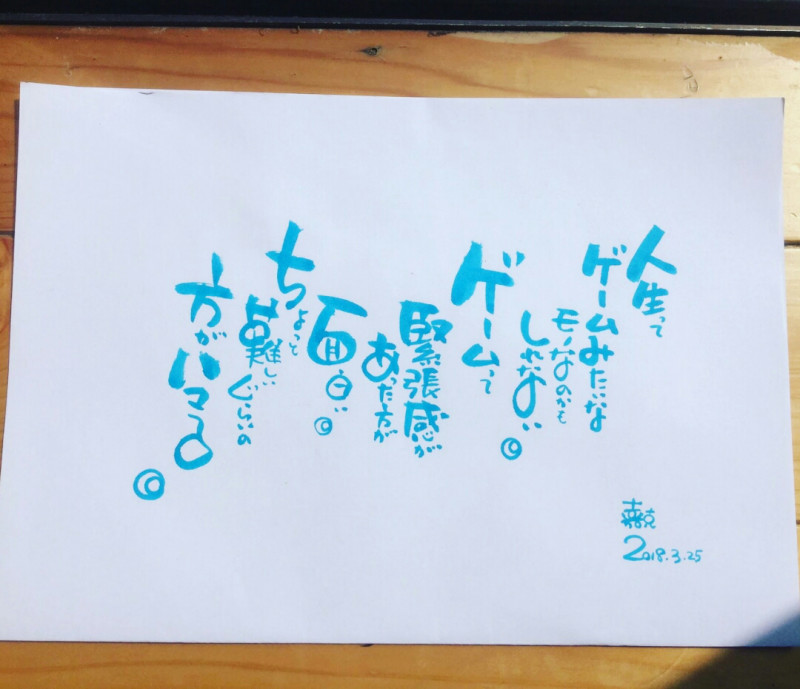 人生って
ゲームみたいな
モノなのかも
しれない。
ゲームって
緊張感が
あった方が
面白い。
ちょっと
難しいぐらいの
方がハマる。
2018.3.25